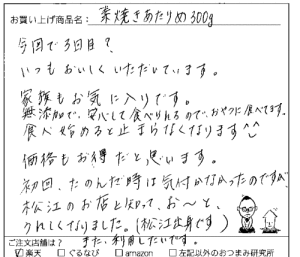 お買い上げ商品名：素焼きあたりめ300g
今回で3回目？
いつもおいしくいただいています。
家族もお気に入りです。
無添加で、安心して食べられるので、おやつに食べてます。
食べ始めると止まらなくなります^^
価格もお得だと思います。
初回、たのんだ時は気付かなかったのですが、
松江のお店と知って、お〜と、
うれしくなりました。(松江出身です)
また、利用したいです。
ご注文店舗は？
☑楽天 □ぐるなび □amazon □左記以外のおつまみ研究所